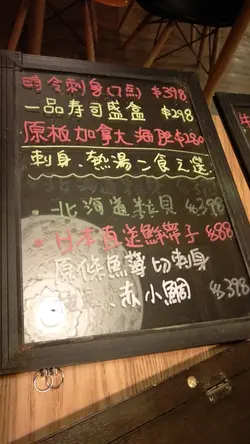 時令刺身(7点) $398
一品寿司盛盒 $298
原板加拿大海胆$280
刺身、熱湯二食之選.
北海道粒貝 $398
日本直送鮮帶子 $88
原條魚薄切刺身
赤小鯛 $398